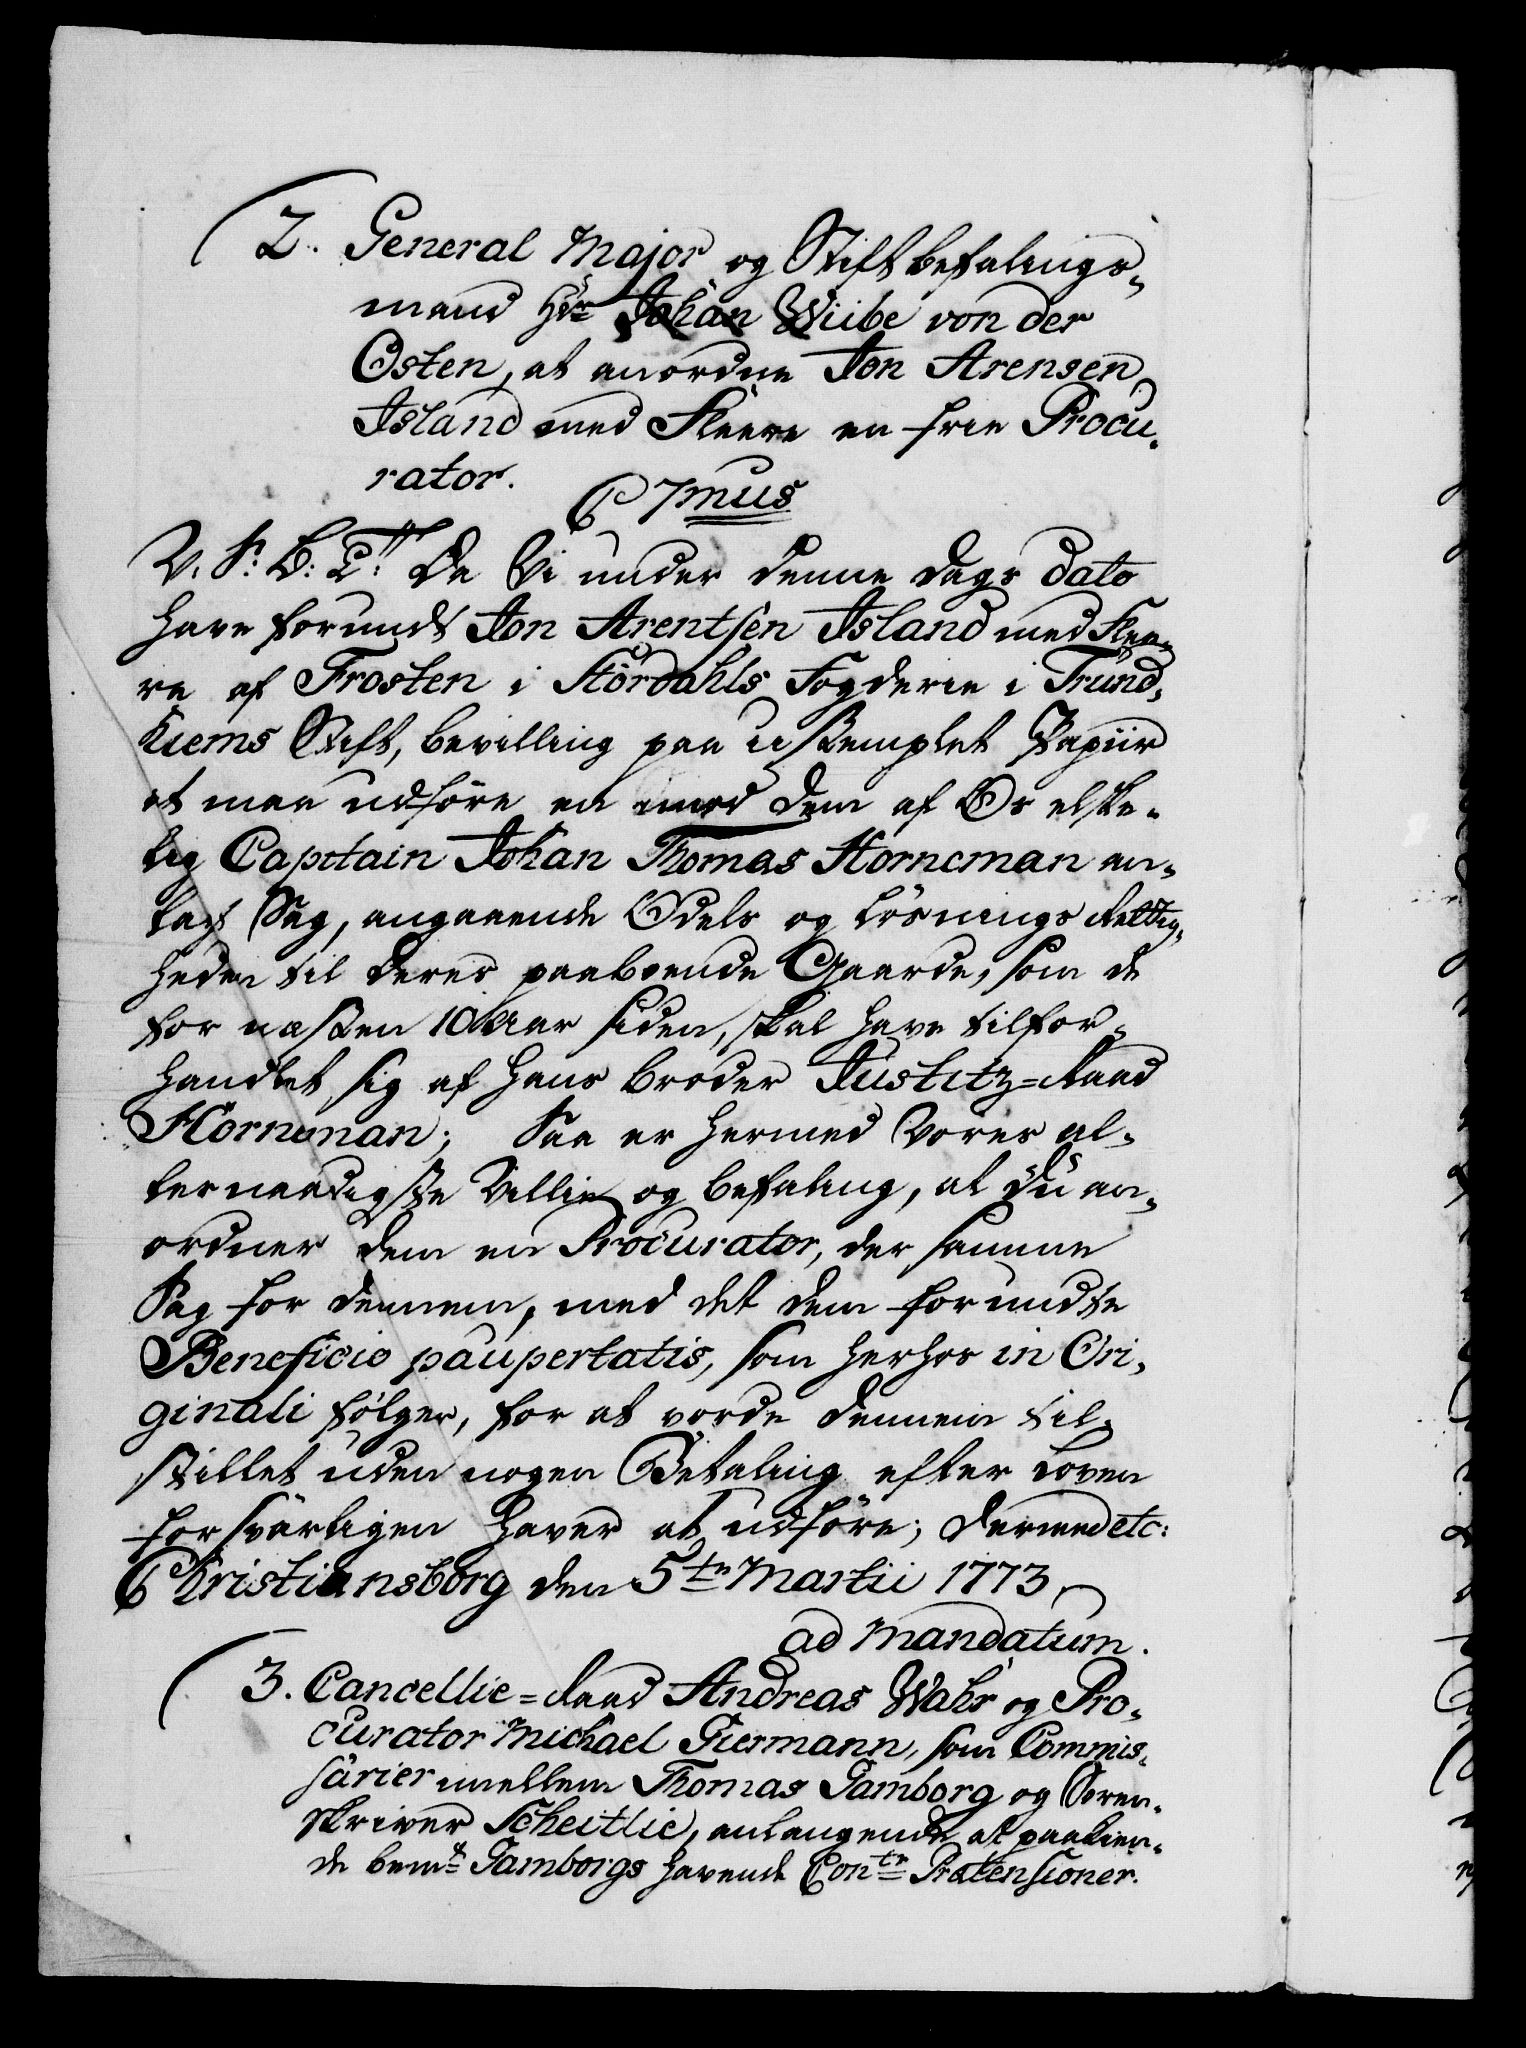 2. General Major og Stiftbefalings-
mand Hr Johan Wiibe von der
Osten, at anordne Jon Arensen
Island med Fleere en frie Procu-
rator.
C 7mus
V. S: B: T: Da Vi under denne Dags dato
have forundt Jon Arentsen Island med Flee-
re af Frosten i Stördahls Fogderie i Trund-
hiems Stift, bevilling paa ustemplet Papiir
at maa udföre en imod dem af Os elske-
lig Capitain Johan Thomas Horneman an-
lagt Sag, angaaende Odels og Lösnings Rettig-
heden til deres paaboende Gaarde, som de
for næsten 10 Aar siden, skal have tilfor-
handlet sig af hans broder Justitz=Raad
Horneman; Saa er hermed Vores al-
lernaadigste Villie og befaling, at du an-
ordner dem en Procurator, der samme
Sag for dennem, med det dem forundte
Beneficio paupertatis, som herhos in Ori-
ginali fölger, for at vorde dennem til-
stillet uden nogen Betaling efter Loven
forsvarligen haver at udföre; dermed etc:
Christiansborg den 5te Martii 1773
ad mandatum.
3. Cancellie=Raad Andreas Wahr og Pro-
curator Michael Giermann, som Commis-
sarier imellem Thomas Gamborg og Soren-
skriver Scheitlie, anlangende at paakien-
de bemte Gamborgs havende Contr Prætensioner.